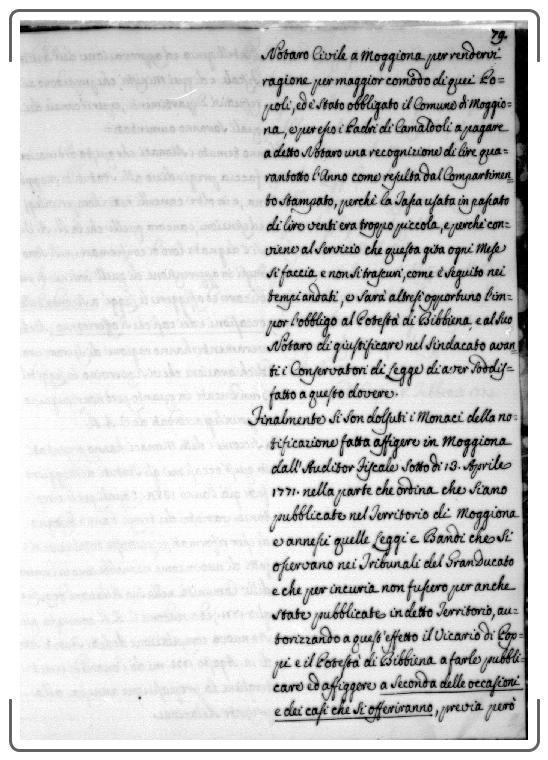 79.
Notaro Civile a Moggiona per rendervi
ragione per maggior comodo di quei Po-
poli, ed è stato obbligato il Comune di Moggio-
na, e per esso i Padri di Camaldoli a pagare
a detto Notaro una recognizione di lire qua-
rantotto l'Anno come resulta dal Compartimen-
to Stampato, perchè la Tassa usata in passato
di lire venti era troppo piccola, e perchè con-
viene al Servizio che questa gita ogni Mese
si faccia e non si trascuri, come è seguito nei
tempi andati, e sarà altresì opportuno l'im-
por l'obbligo al Potestà di Bibbiena, e al Suo
Notaro di giustificare nel Sindacato avan-
ti i Conservatori di Legge di aver Soddis-
fatto a questo dovere.
Finalmente Si son dolsuti i Monaci della no-
tificazione fatta affigere in Moggiona
dall'Auditor Fiscale Sotto di 13. Aprile
1771. nella parte che ordina che Siano
pubblicate nel Territorio di Moggiona
e annessi quelle Leggi e Bandi che Si
osservano nei Tribunali del Granducato
e che per incuria non fussero per anche
State pubblicate in detto Territorio, au-
torizzando a quest'effetto il Vicario di Pop-
pi e il Potestà di Bibbiena a farle pubbli-
care ed affiggere a Seconda delle occasioni
e dei casi che Si offeriranno, previa però